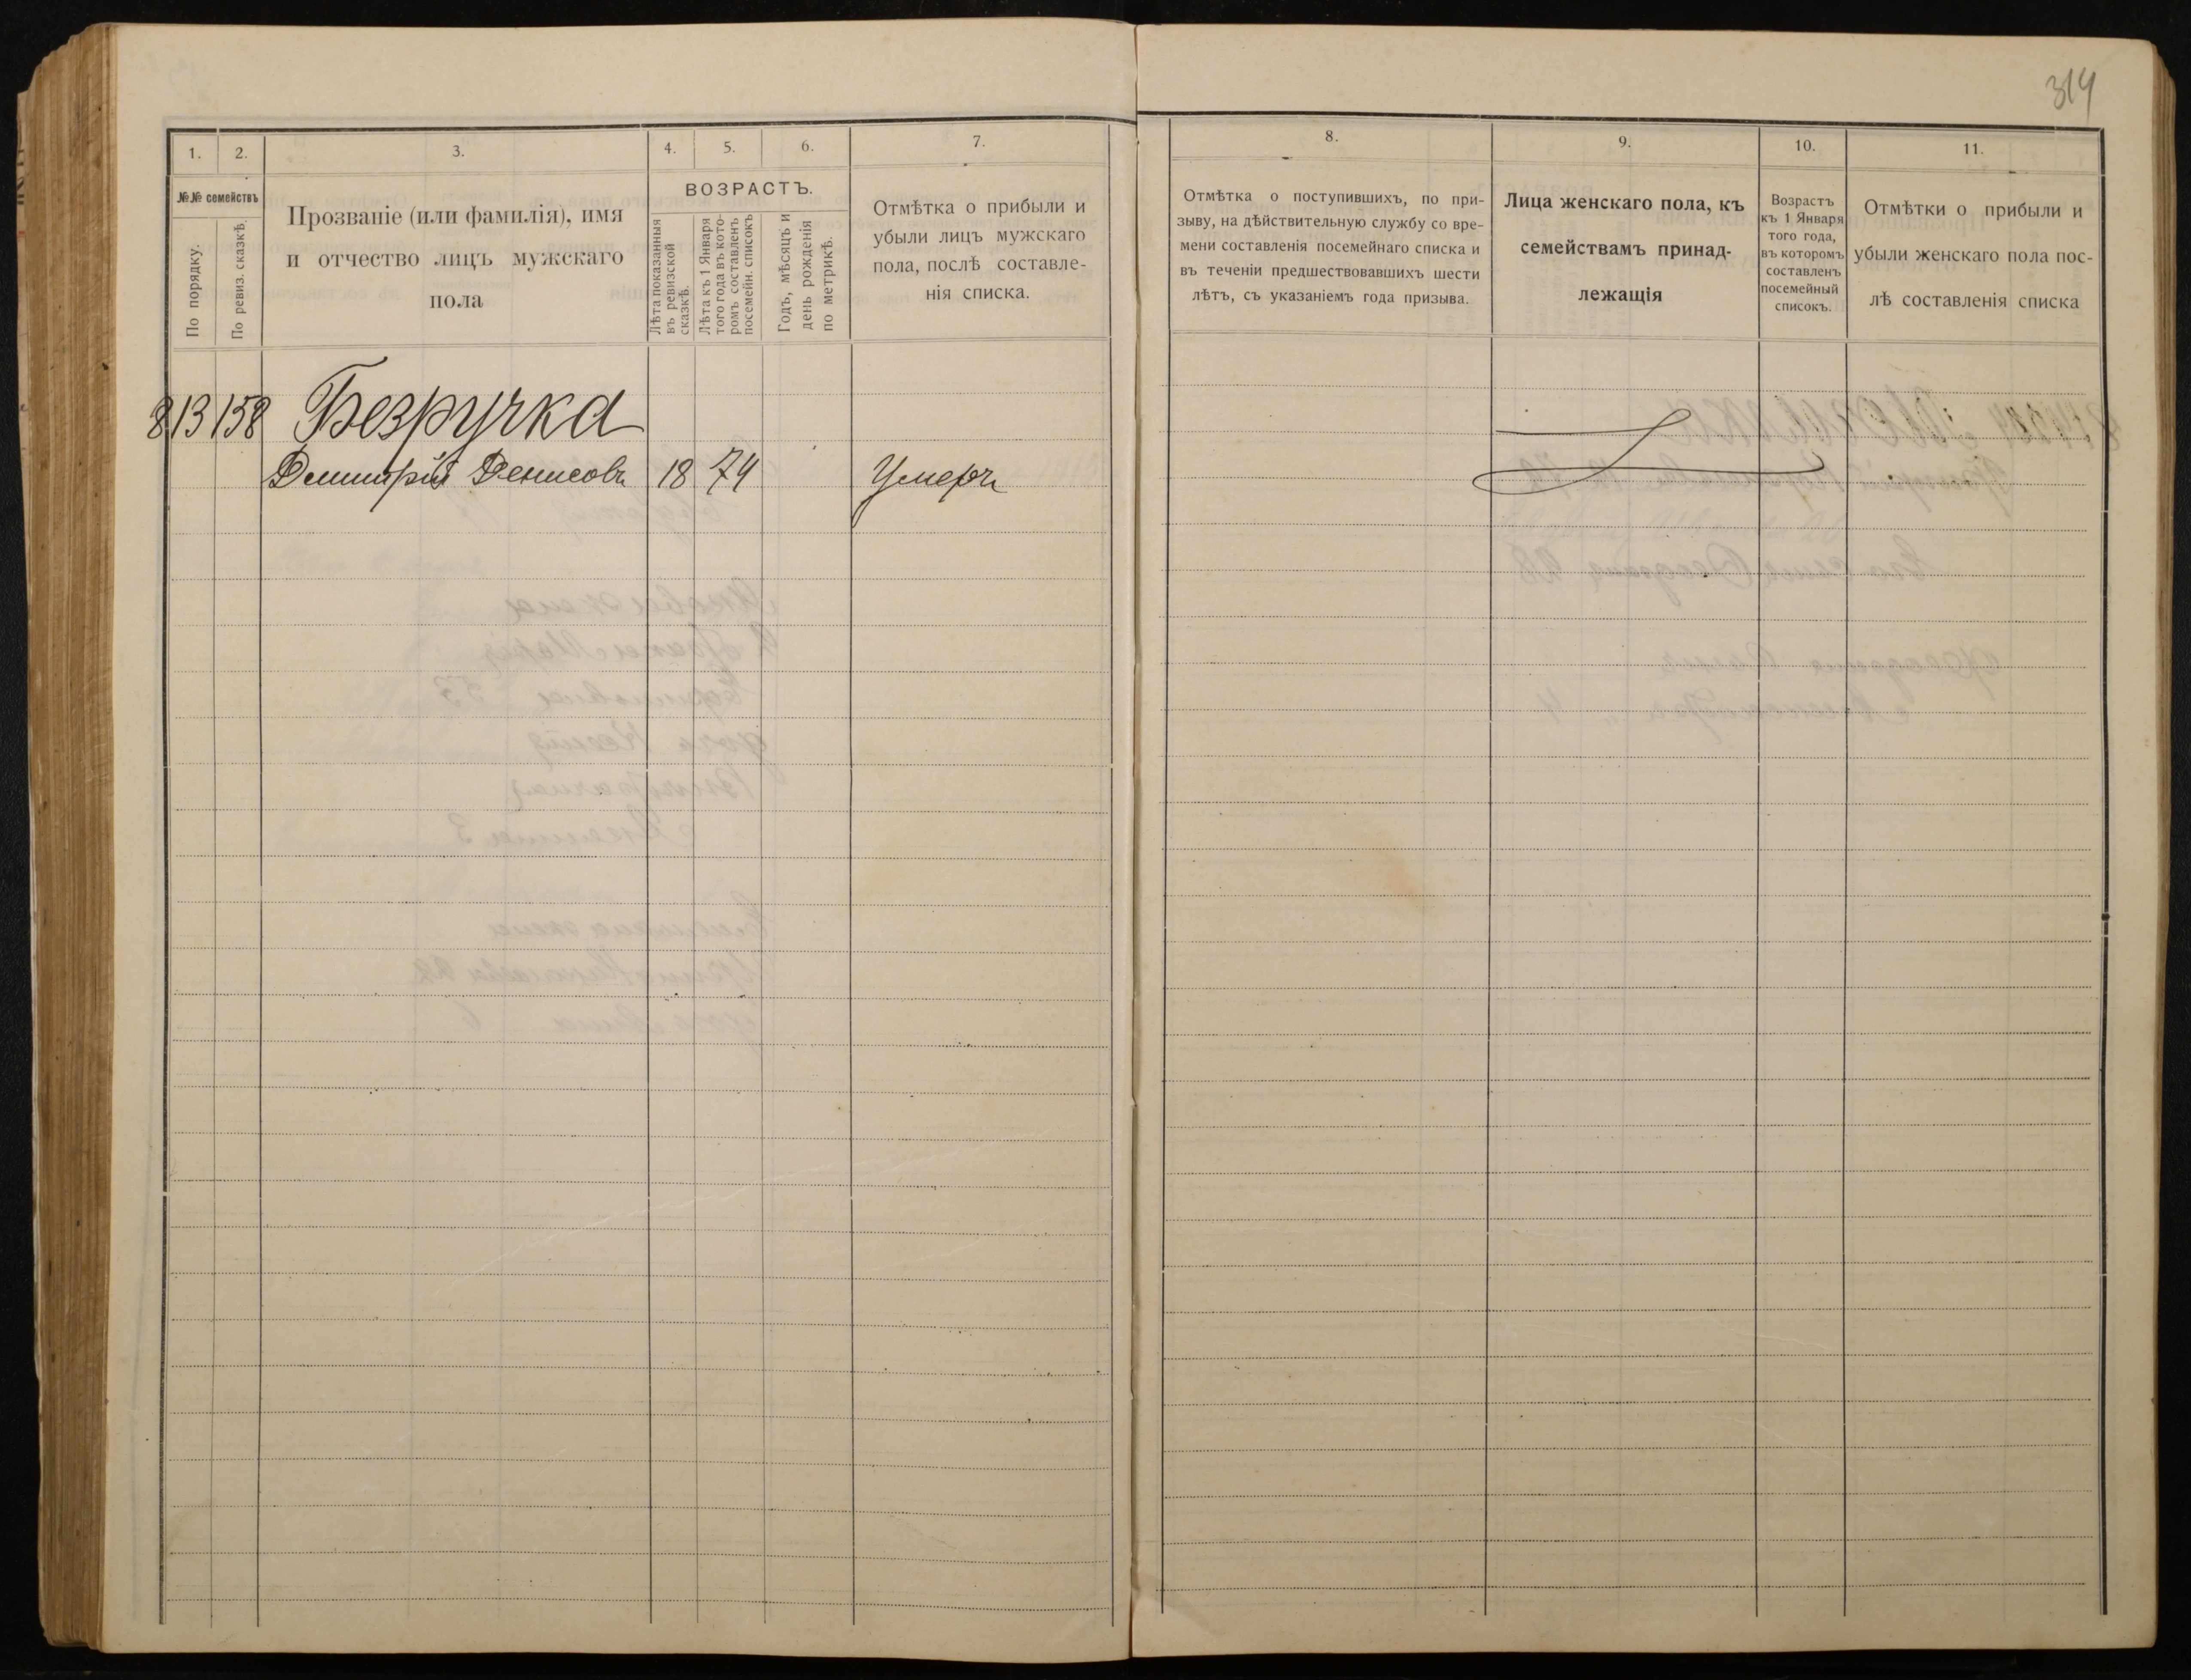 314
1. 2. 3. 4. 5. 6. 7.
№№ семействъ
По порядку.
По ревиз. сказкѣ.
Прозваніе (или фамилія), имя
и отчество лицъ мужскаго
пола
ВОЗРАСТЪ.
Лѣта показанныя
въ ревизской
сказкѣ.
Лѣта къ 1 Января
того года въ кото-
ромъ составленъ
посемейн. списокъ
Годъ, мѣсяцъ и
день рожденія
по метрикѣ.
Отмѣтка о прибыли и
убыли лицъ мужскаго
пола, послѣ составле-
нія списка.
8. 9. 10. 11.
Отмѣтка о поступившихъ, по при-
зыву, на дѣйствительную службу со вре-
мени составленія посемейнаго списка и
въ теченіи предшествовавшихъ шести
лѣтъ, съ указаніемъ года призыва.
Лица женскаго пола, къ
семействамъ принад-
лежащія
Возрастъ
къ 1 Января
того года,
въ которомъ
составленъ
посемейный
списокъ.
Отмѣтки о прибыли и
убыли женскаго пола пос-
лѣ составленія списка
813 158 Безручка
Дмитрій Денисовъ 18 74 Умеръ